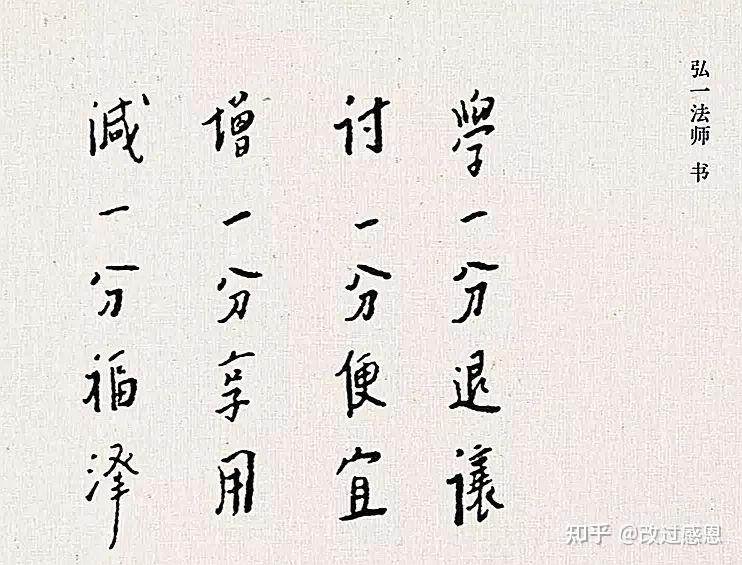 弘一法师 书
學一分退讓
討一分便宜
增一分享用
減一分福澤
知乎 @改过感恩